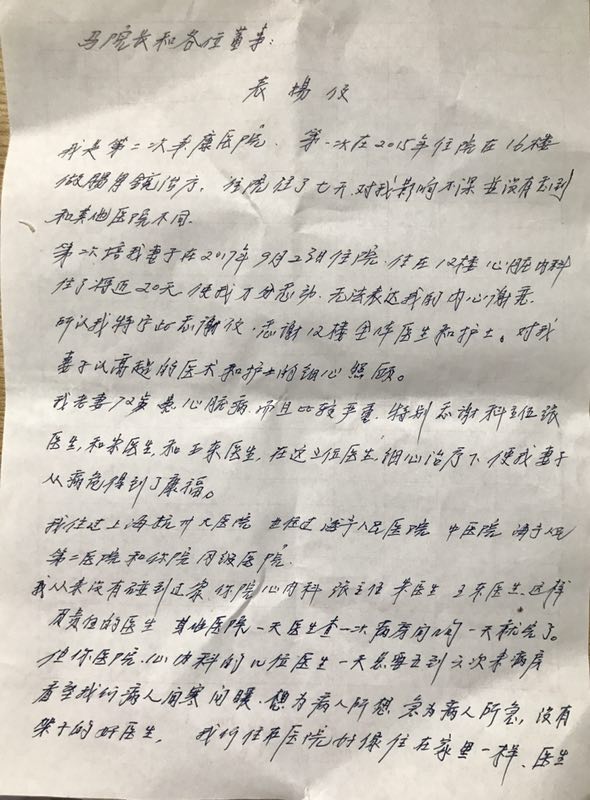 马院长和各位董事:
表扬信
我是第二次来康医院. 第一次在2015年住院在16楼
做肠胃镜治疗. 住院住了七天.对我影响不深并没有感到
和其他医院不同.
第二次培我妻于在2017年9月23日住院.住在12楼心脏内科
住了将近20天使我万分感动.无法表达我的内心谢意.
所以我特写此感谢信.感谢12楼全体医生和护士。对我
妻子以高超的医术和护士的细心照顾。
我老妻72岁患心脏病.而且比较严重.特别感谢科主任张
医生,和朱医生,和王东医生,在这三位医生细心治疗下使我妻子
从病危得到了康福。
我住过上海杭州大医院 也住过海宁人民医院 中医院 海宁人民
第二医院和你院同级医院.
我从来没有碰到过象你院心内科 张主任 朱医生 王东医生.这样
负责任的医生 其他医院一天医生查一次病房问问一天就完了。
但你医院.心内科的几位医生一天总要五到六次来病房
看望我们病人问寒问暖.想为病人所想.急为病人所急,没有
架子的好医生. 我们住在医院好像住在家里一样、医生